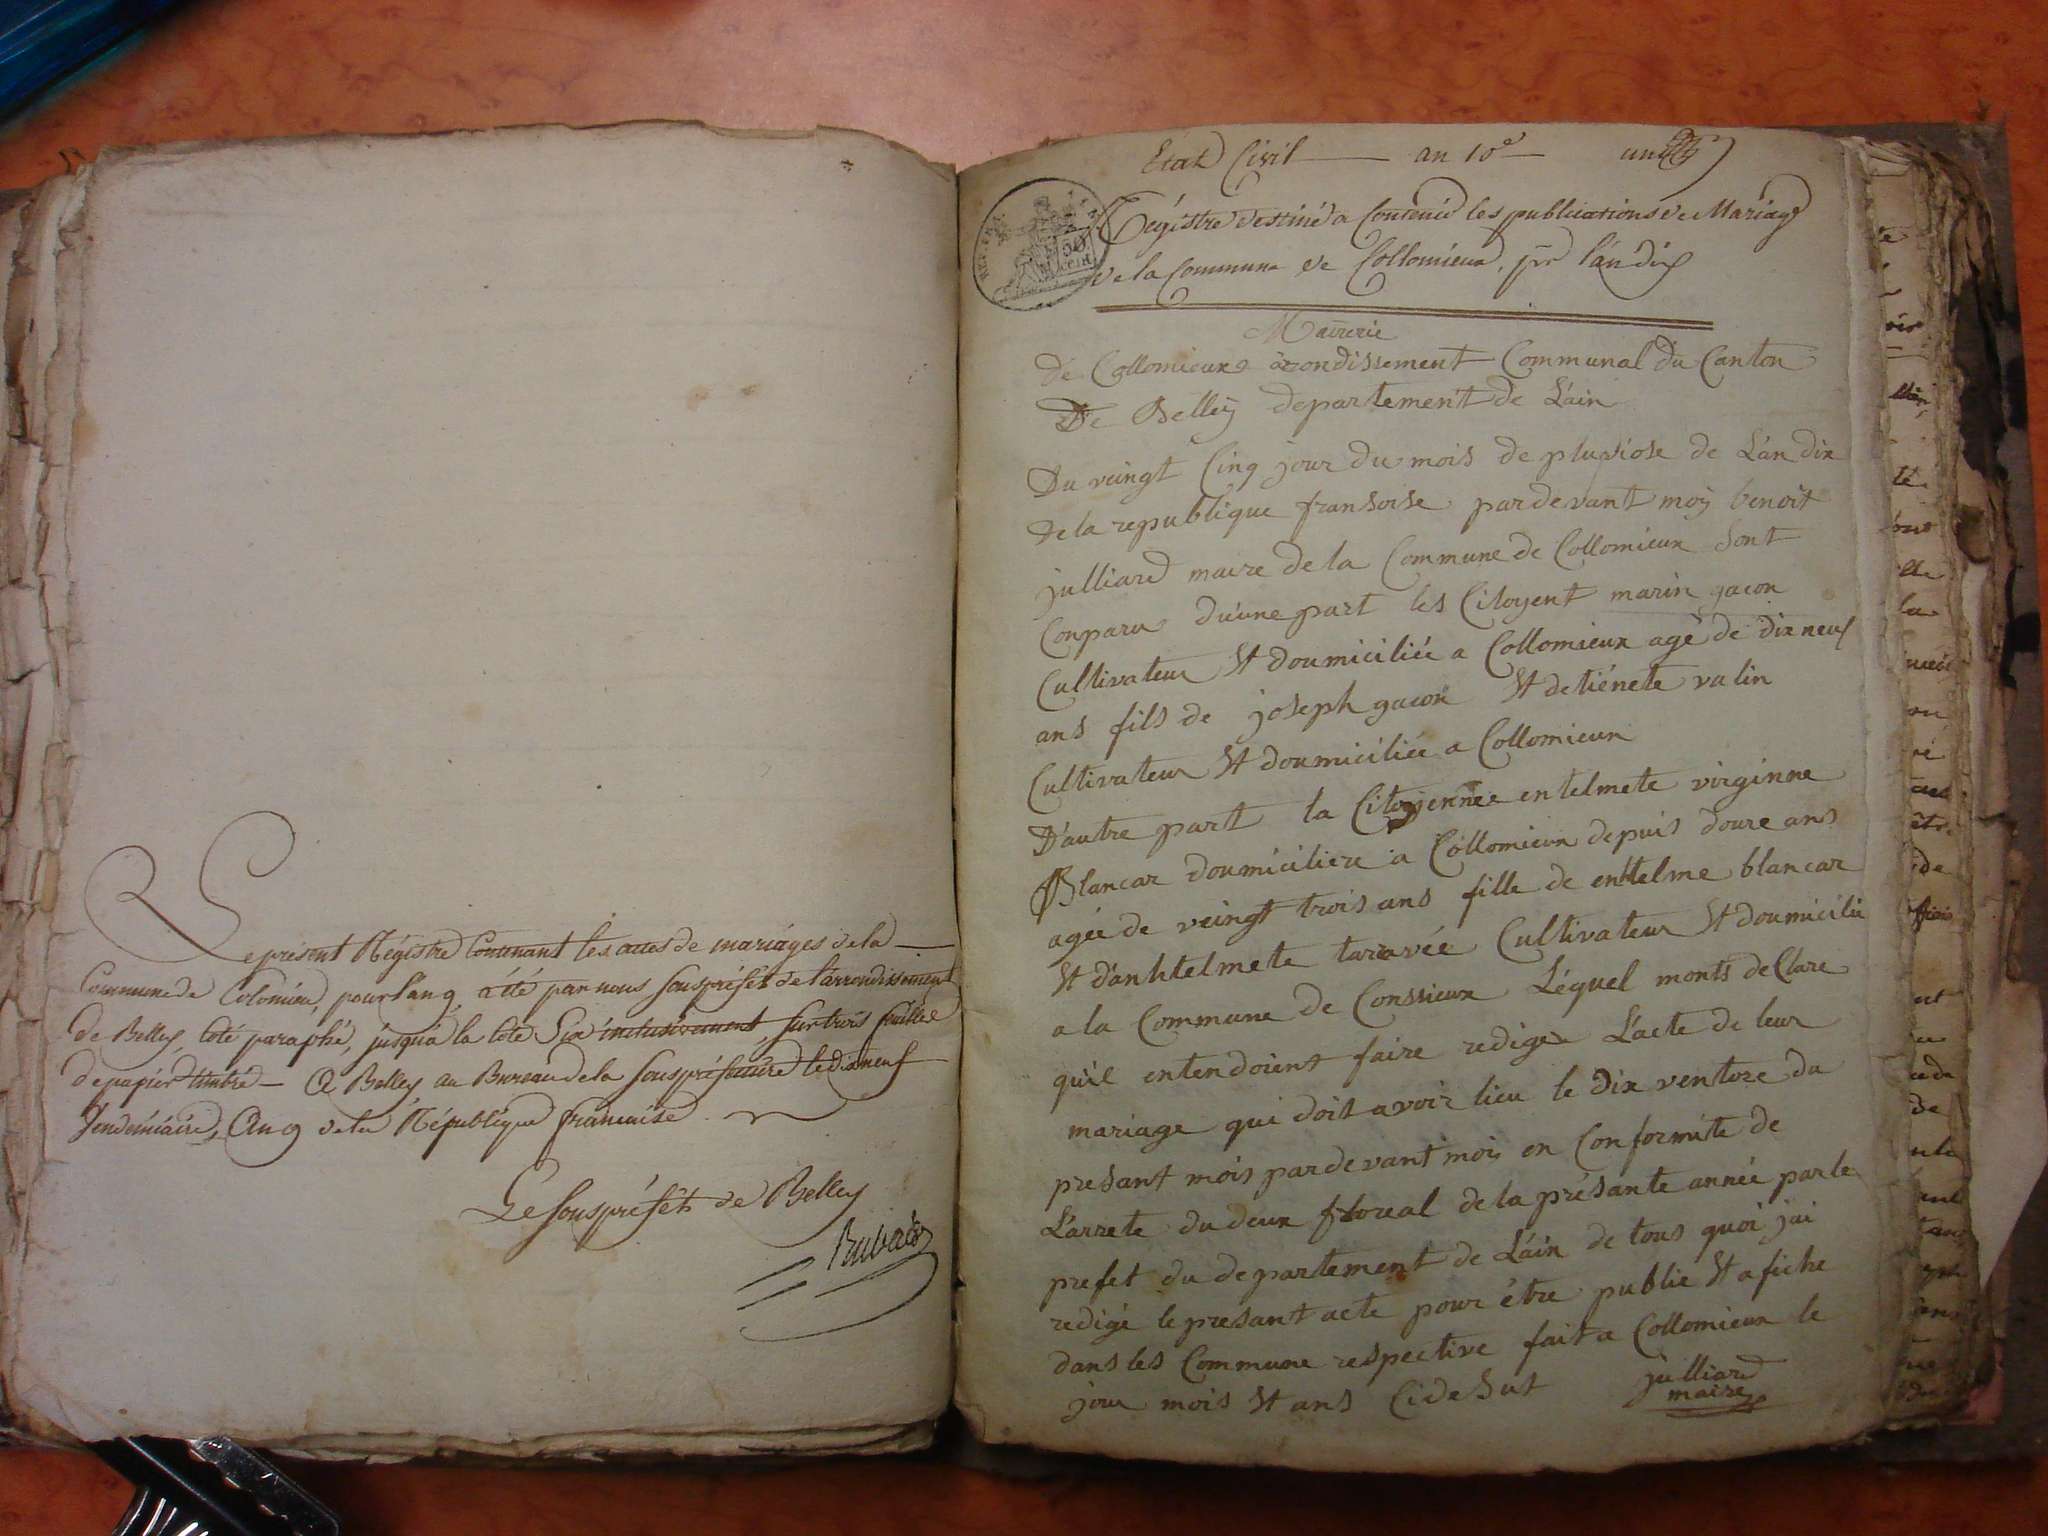 Le présent Régistre Contenant les actes de mariages de la
Commune de Colomieu, pour l'an 9, a été par nous souspréfêt de l'arrondissement
de Belley, coté paraphé, jusqu'à la cote Six inclusivement, sur trois feuilles
de papier timbré — A Belley au Bureau de la souspréfecture le dixneuf
Vendémiaire, An 9 de la République française.
Le souspréfêt de Belley
État Civil — an 10e — un
Régistre destiné a Contenir les publications de Mariage
de la Commune de Collomieux, pr l'an dix
50
Mairerie
de Collomieux arondissement Communal du Canton
De Belleÿ departement de L'ain
Du veingt Cinq jour du mois de pluviose de L'an dix
de la republique fransoise pardevant moÿ benoit
julliard maire de la Commune de Collomieux Sont
Conparu d'une part les Citoyent marin gacon
Cultivateur Et doumiciliée a Collomieux agé de dix neuf
ans fils de joseph gacon Et detiénete valin
Cultivateur Et doumiciliée a Collomieux
D'autre part la Citoyennée entelmete virginne
Blancar doumiciliere a Collomieux depuis douze ans
agée de veingt trois ans fille de enhtelme blancar
Et d'anhtelmete taravée Cultivateur Et doumicilié
a la Commune de Conssieux Léquel monts de Clare
quil entendoient faire redigex L'acte de leur
mariage qui doit avoir lieu le dix ventoze du
presant mois pardevant mois en Conformite de
L'arrete du deux floreal de la présante année par le
prefet du departement de L'ain de tous quoi jai
redigé le presant acte pour étre publie Et afiche
dans les Commune respective fait a Collomieux le
jour mois Et ans Cidesut julliard
maire